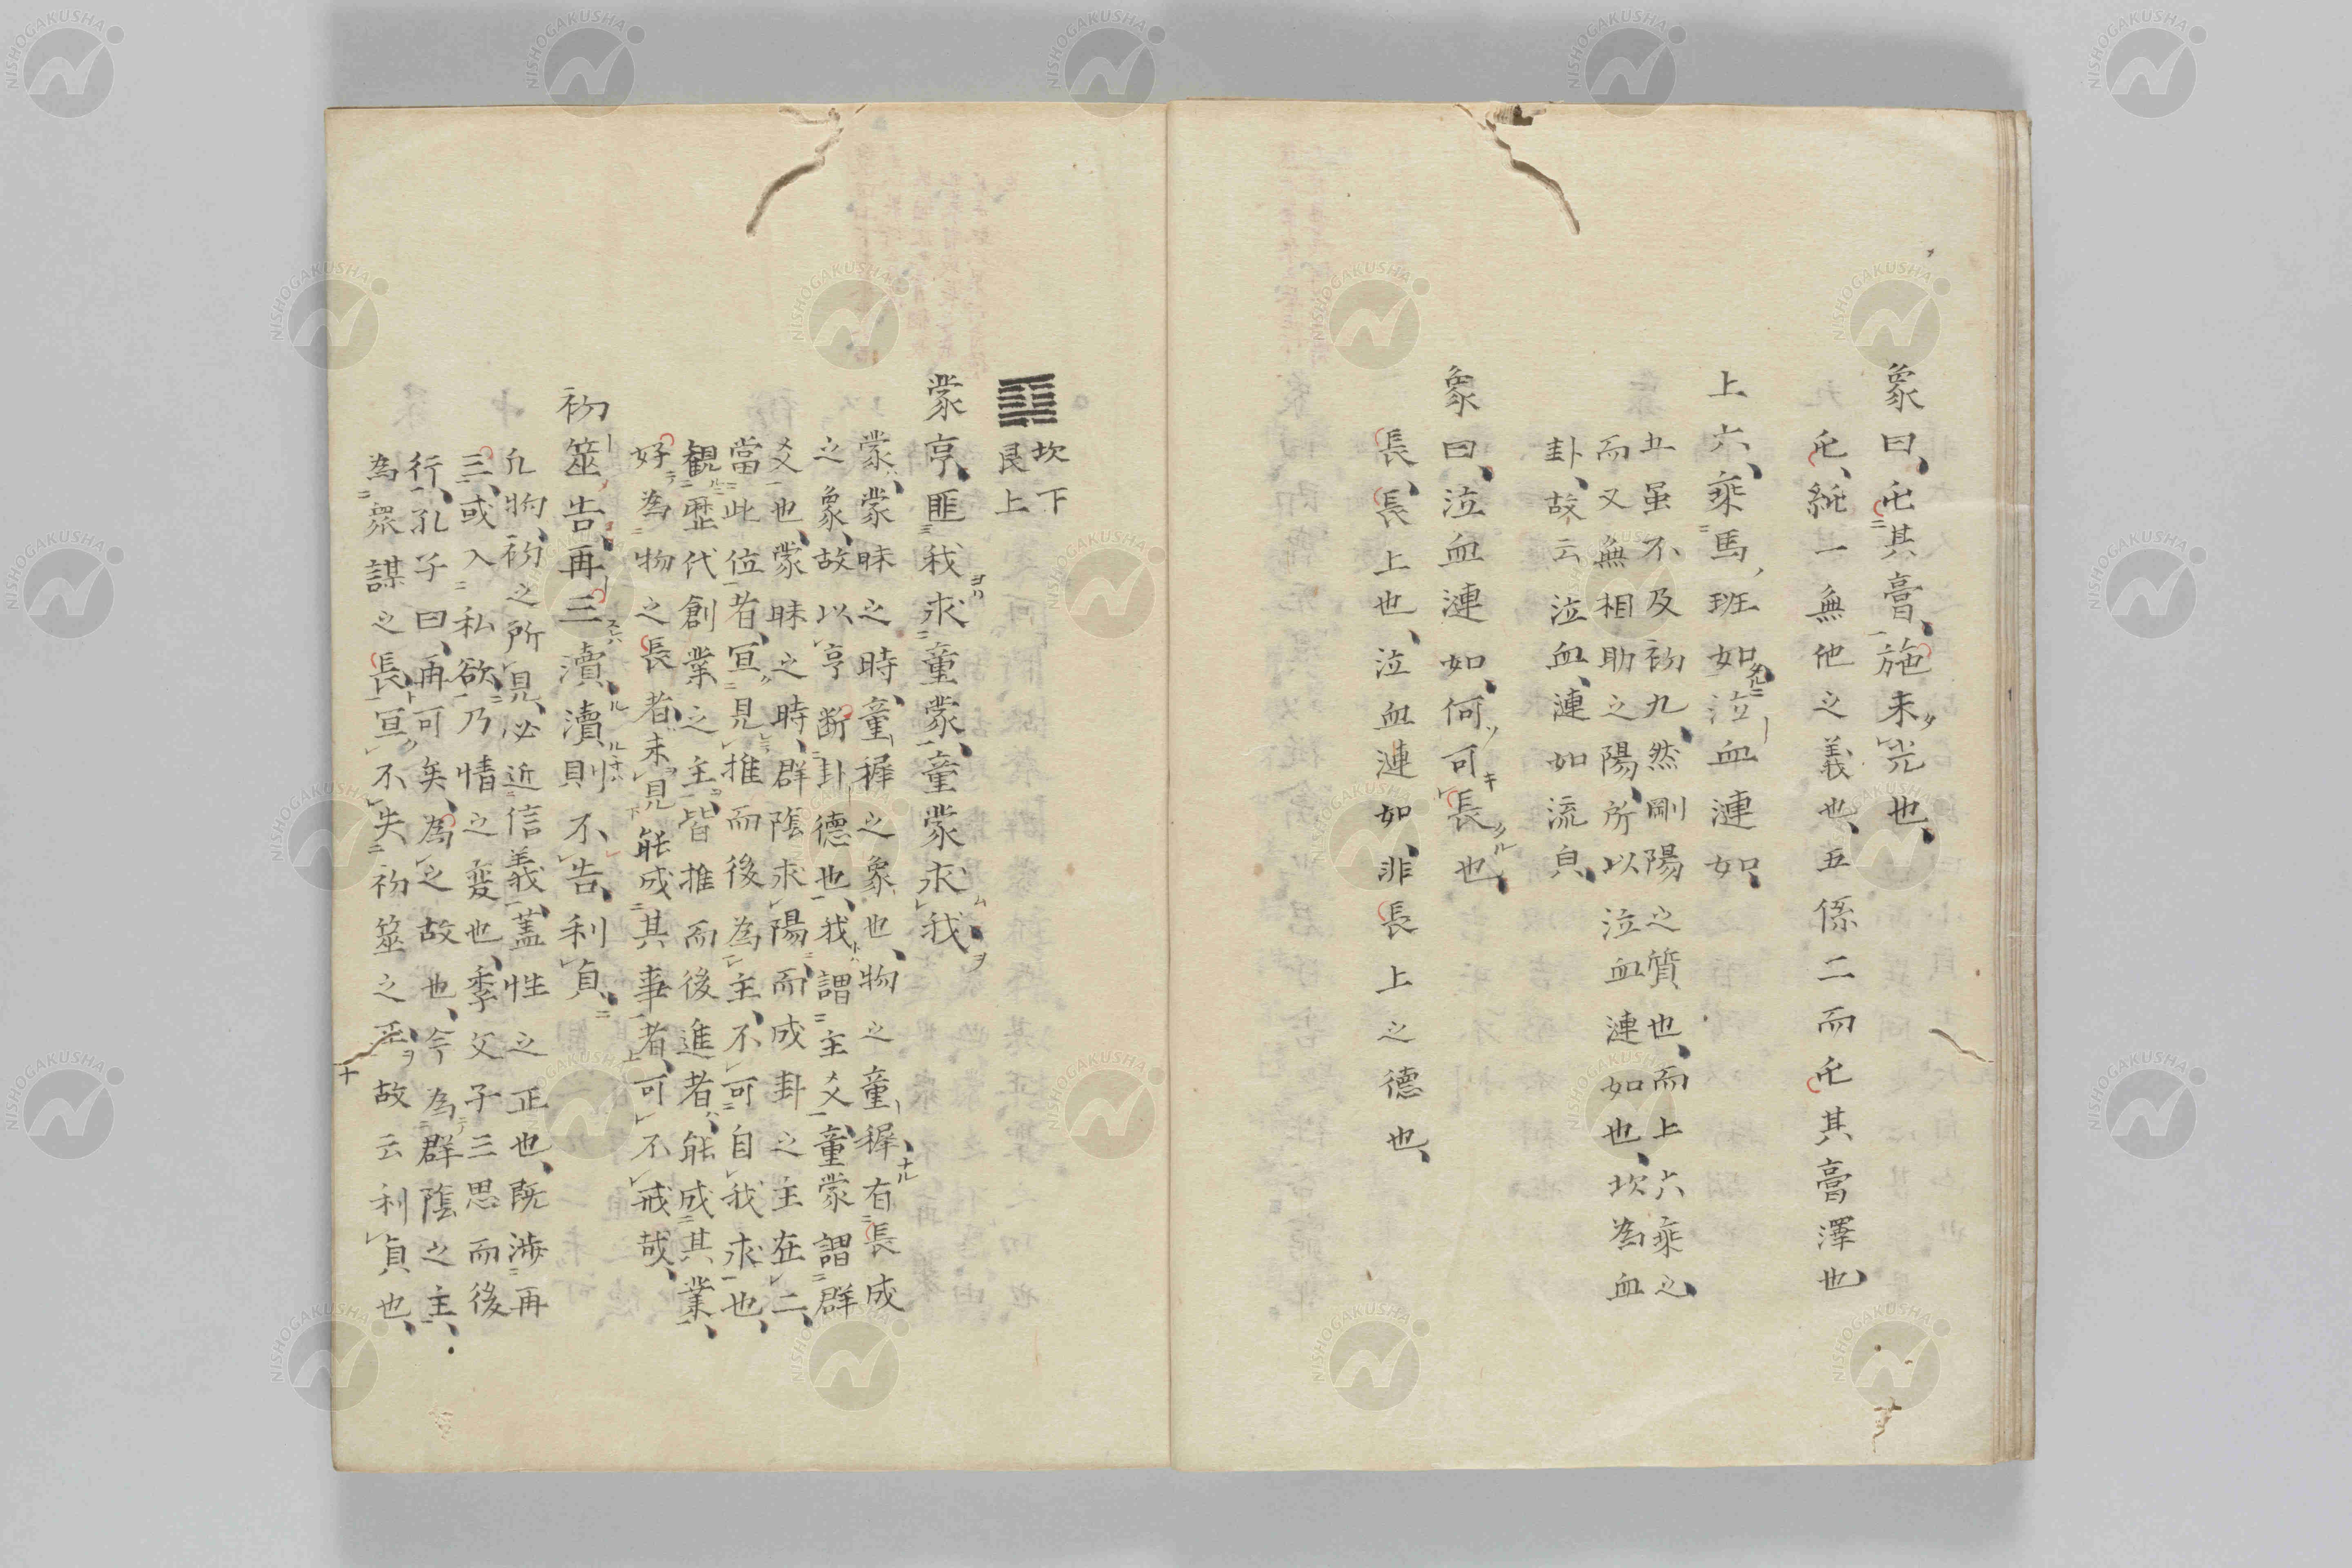 象曰、屯其膏、施未光也、
屯、純一無他之義也、五係二而屯其膏澤也
上六、乘馬班如、泣血漣如、
五虽不及初九、然剛陽之質也、而上六乘之
而又無相助之陽、所以泣血漣如也、坎為血
卦、故云泣血、漣如流皃、
象曰、泣血漣如、何可長也、
長、長上也、泣血漣如、非長上之德也、
坎下
艮上
蒙亨、匪我求童蒙、童蒙求我、
蒙、蒙昧之時、童穉之象也、物之童穉、有長成
之象、故以亨断卦德也、我謂主爻、童蒙謂群
爻也、蒙昧之時、群陰求陽、而成卦之主在二、
當此位者、宜見推而後為主、不可自我求也、
観歷代創業之主、皆推而後進者、能成其業、
好為物之長者、未見能成其事者、可不戒哉、
初筮告、再三瀆、瀆則不告、利貞、
凡物、初之所見、必近信義、蓋性之正也、既渉再
三、或入私欲、乃情之変也、季文子三思而後
行、孔子曰、再可矣、為之故也、今為群陰之主、
為衆謀之長、宜不失初筮之正、故云利貞也、
十
NISHOGAKUSHA